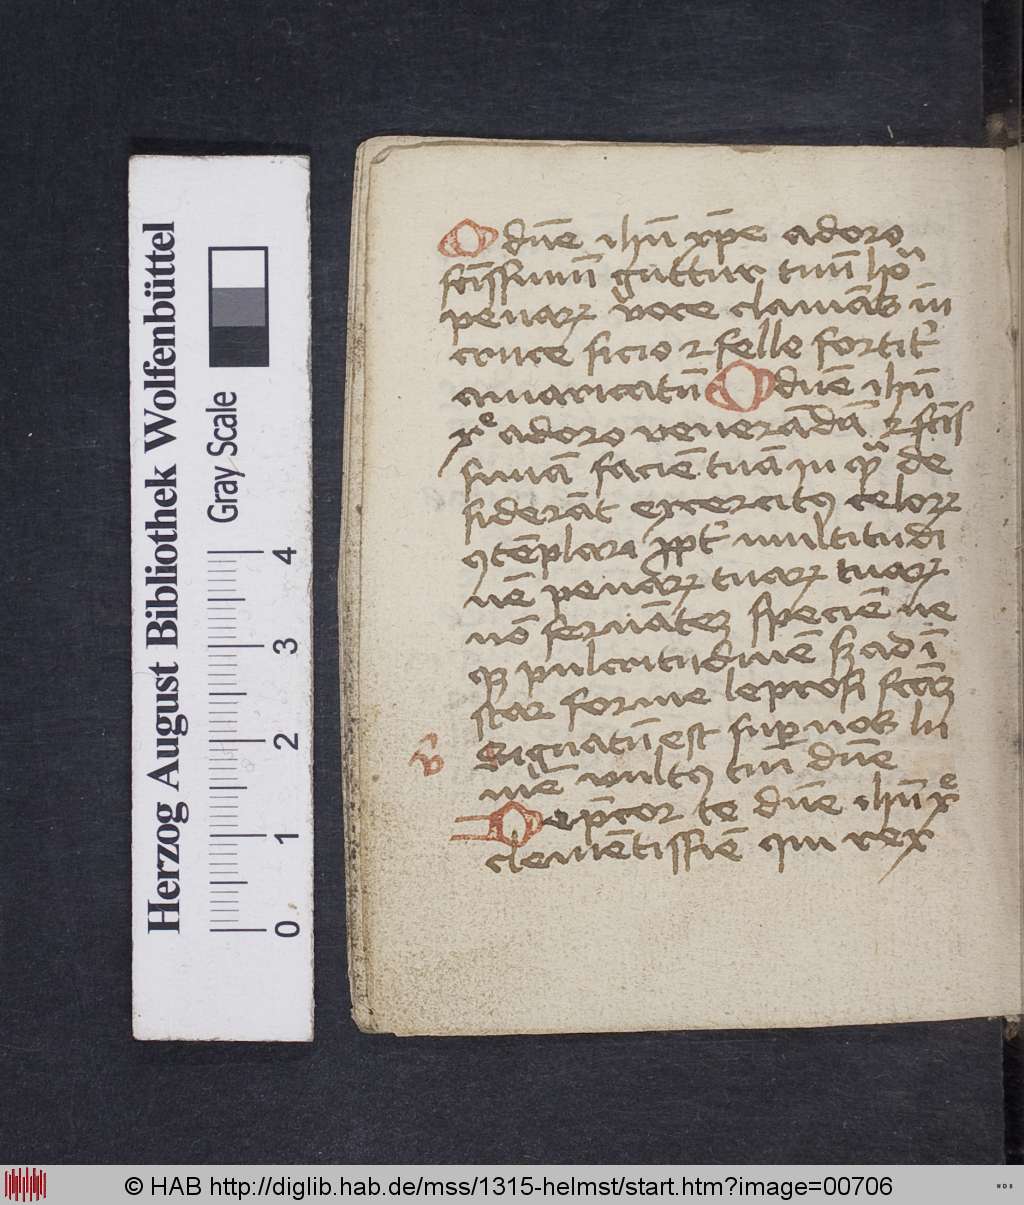 O dn̄e ihū xp̄e adoro
sc̄issimū guttur tuū ho
penarꝝ voce clamās in
cruce sicio ⁊ felle fortit᷑
amaricatū O dn̄e ihū
xe adoro venerādā ⁊ sc̄is
simā faciē tuā in q̄ de
siderāt exercitꝯ celorꝝ
ꝯtēplari ꝓpt᷑ multitudi
nē penarꝝ tuarꝝ tuarꝝ
nō seruātē speciē ne
qꝫ pulcritudinē sꝫ ad ī
star forme leprosi
Signatū est suꝑ nos lu
v̄
mē vultꝯ tui dn̄e
Dep̄cor te dn̄e ihū xe
clemētissīe qui rex
Herzog August Bibliothek Wolfenbüttel
Gray Scale
0 1 2 3 4
© HAB http://diglib.hab.de/mss/1315-helmst/start.htm?image=00706